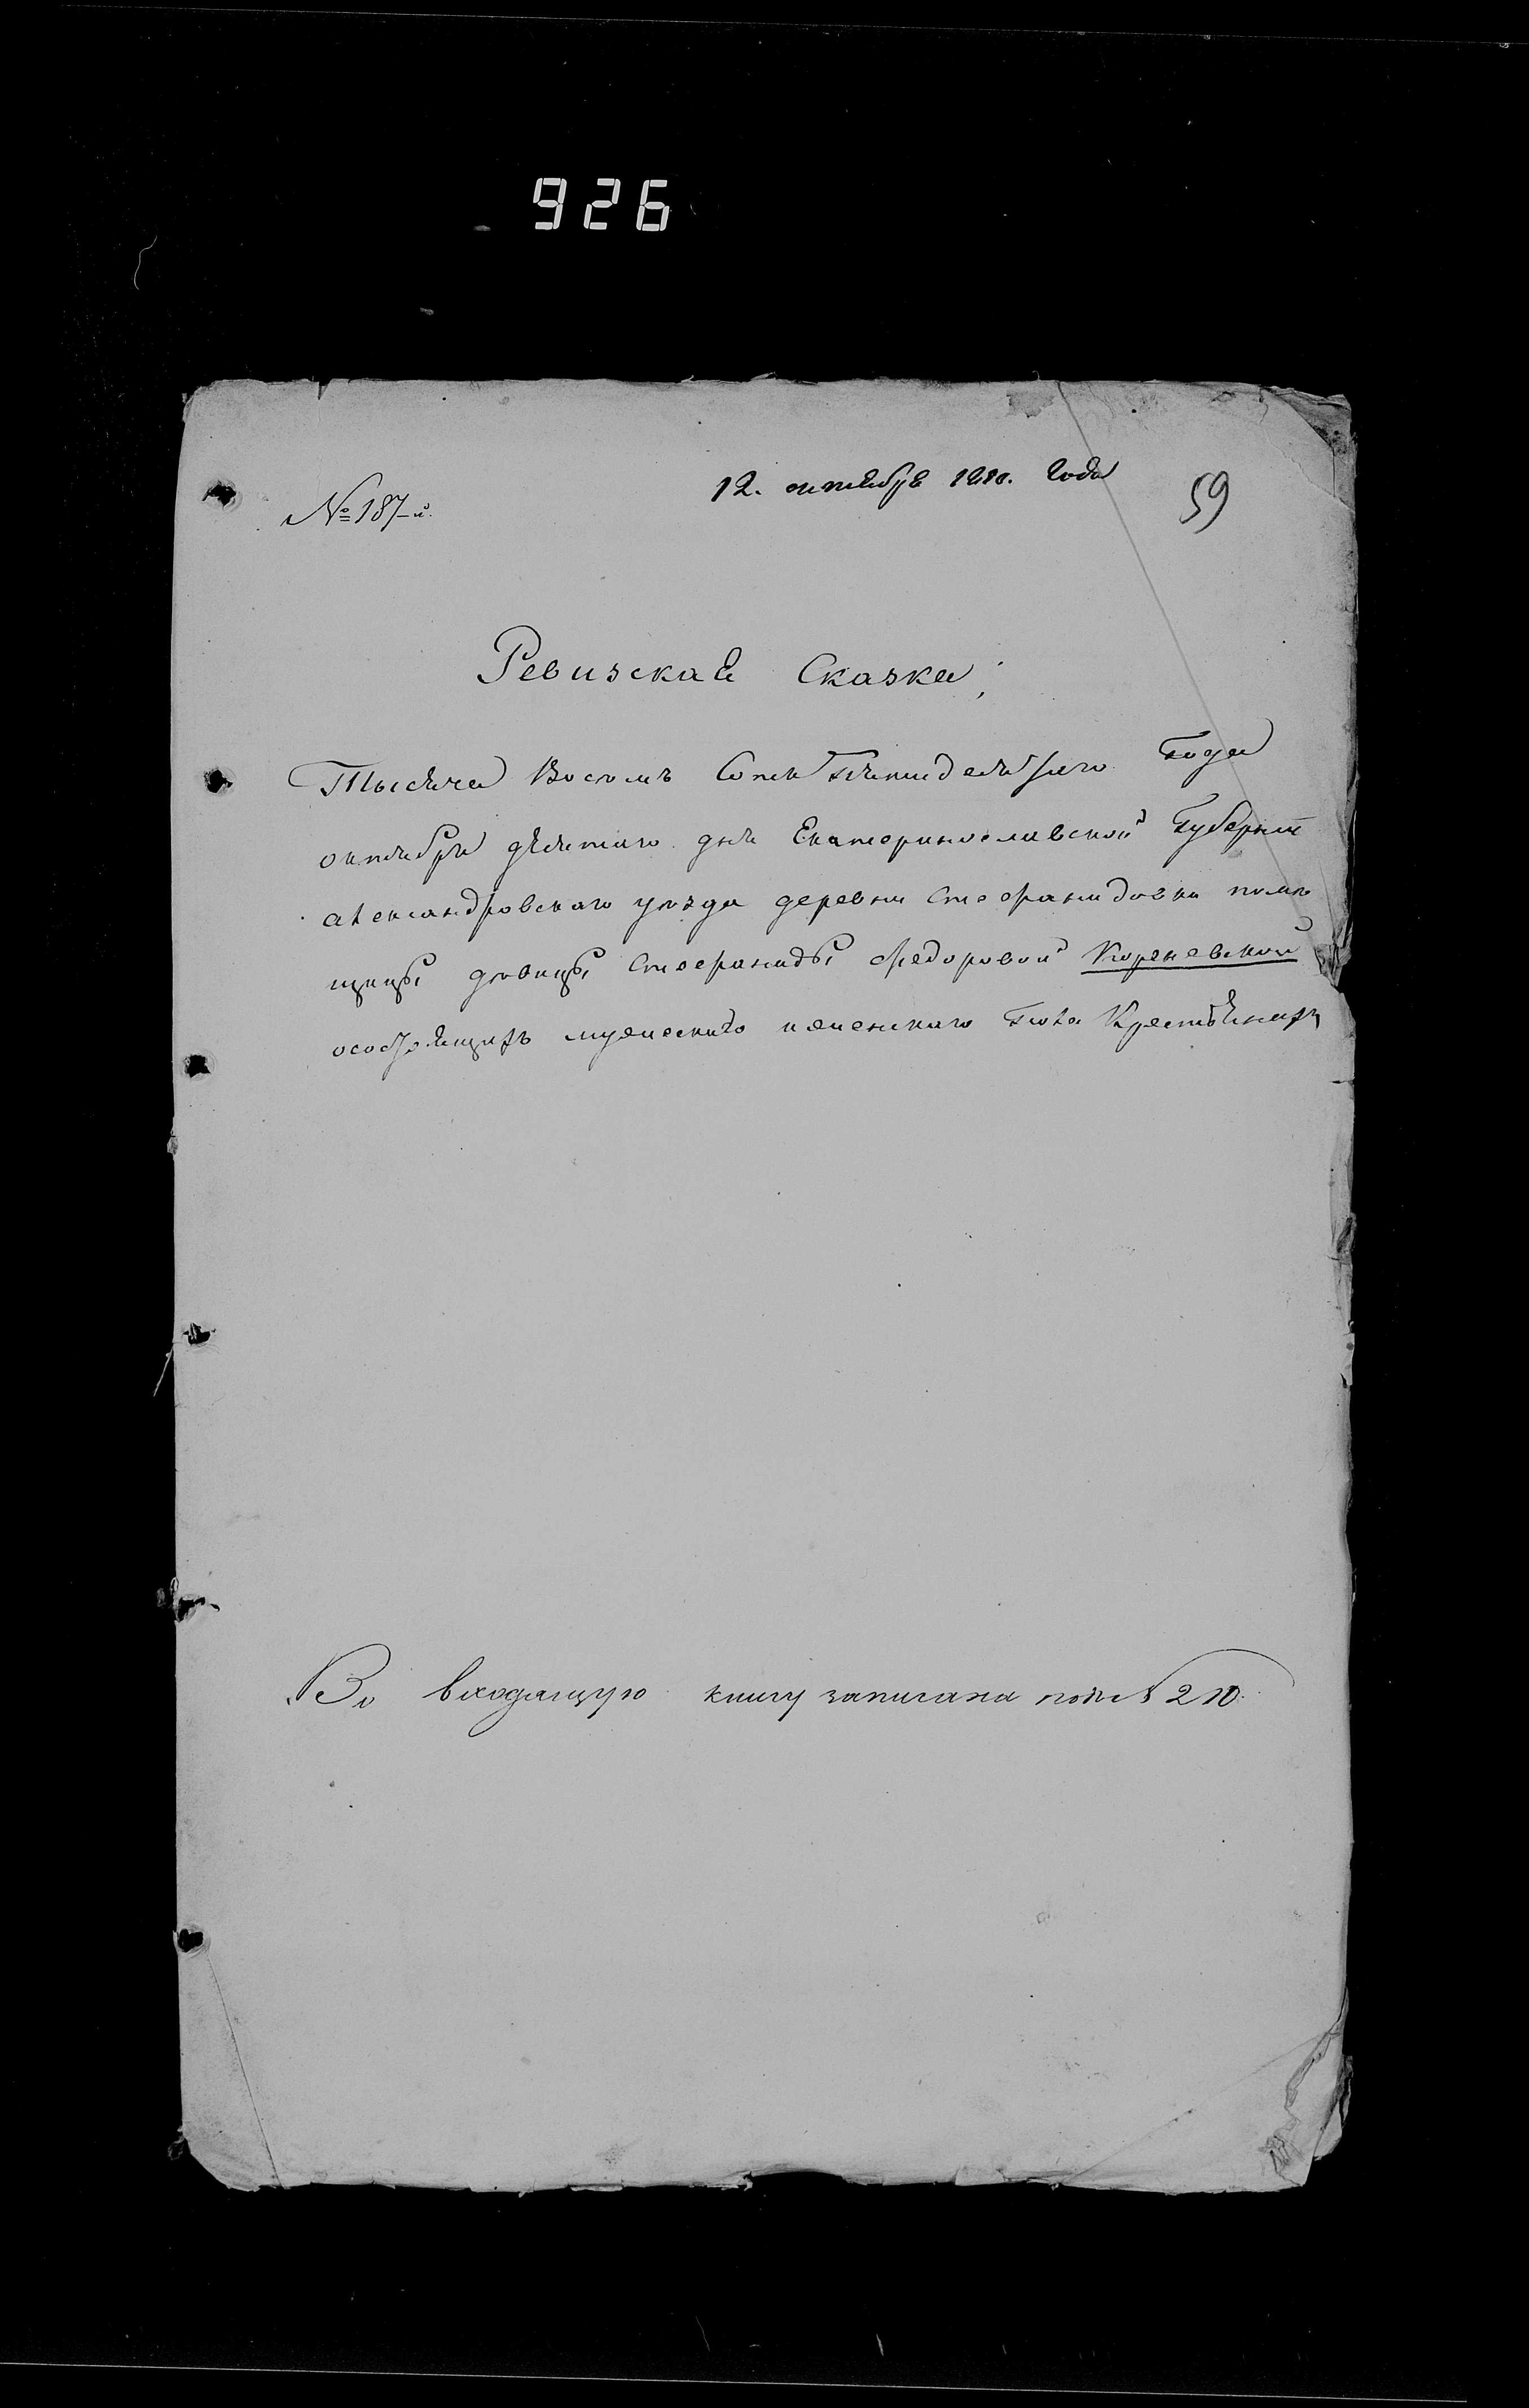 926
12. октября 1850. Года
59
№ 187-й.
Ревизская Сказка;
Тысяча Восемь Сотъ Пятидесятаго Года
октября девятаго дня Екатеринославской Губерніи
александровскаго уезда деревни Стефанидовки поме
щицы девицы Стефаниды Федоровой Кореневской
осостоящихъ мужескаго и женскаго Пола Крестьянахъ
Во входящую книгу записана подъ № 210.